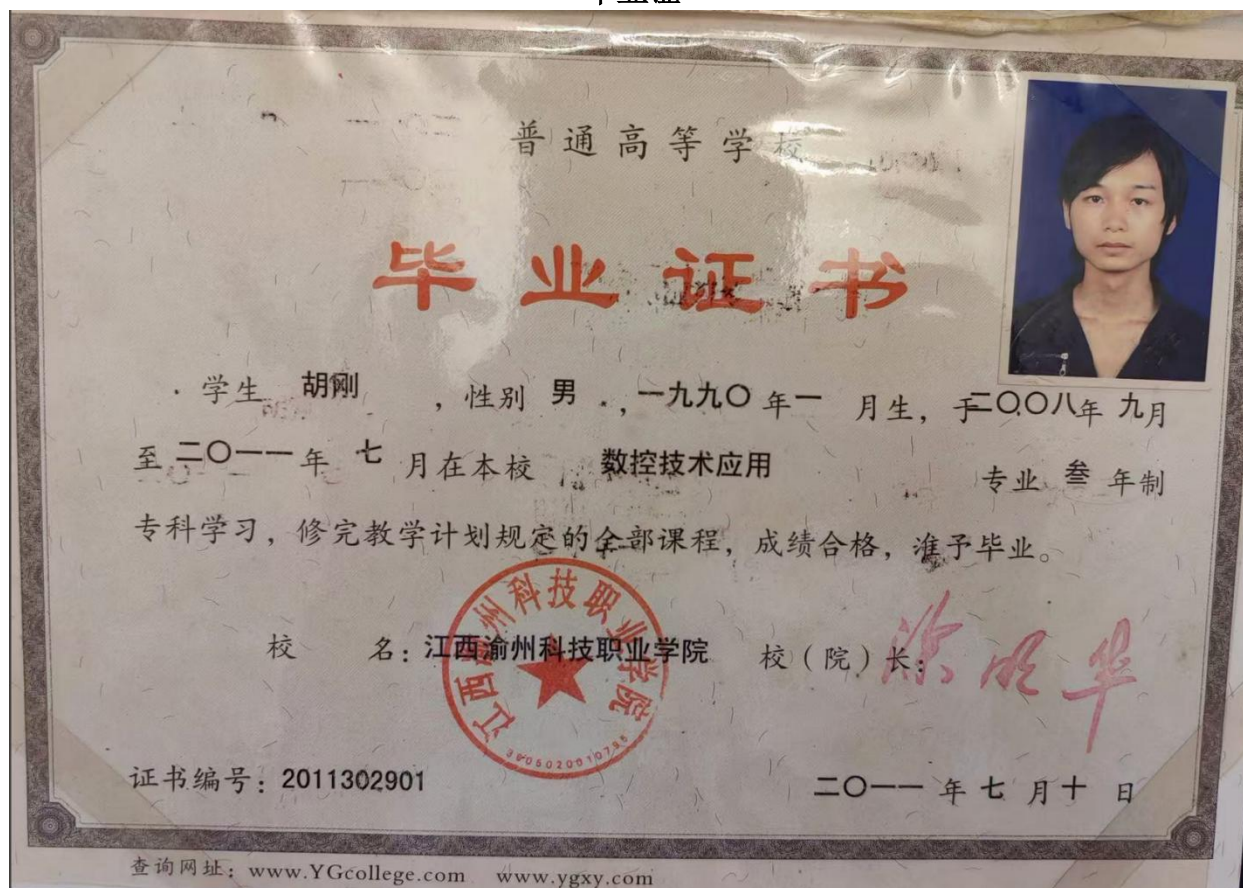 毕业证
普通高等学校
毕业证书
学生 胡刚 ，性别 男 ，一九九〇年一 月生，于二〇〇八年 九月
至 二〇一一年 七 月在本校 数控技术应用 专业 叁 年制
专科学习，修完教学计划规定的全部课程，成绩合格，准予毕业。
校 名：江西渝州科技职业学院 校（院）长：
江西渝州科技职业学院
证书编号：2011302901 二〇一一 年 七 月 十 日
查询网址：www.YGcollege.com www.ygxy.com